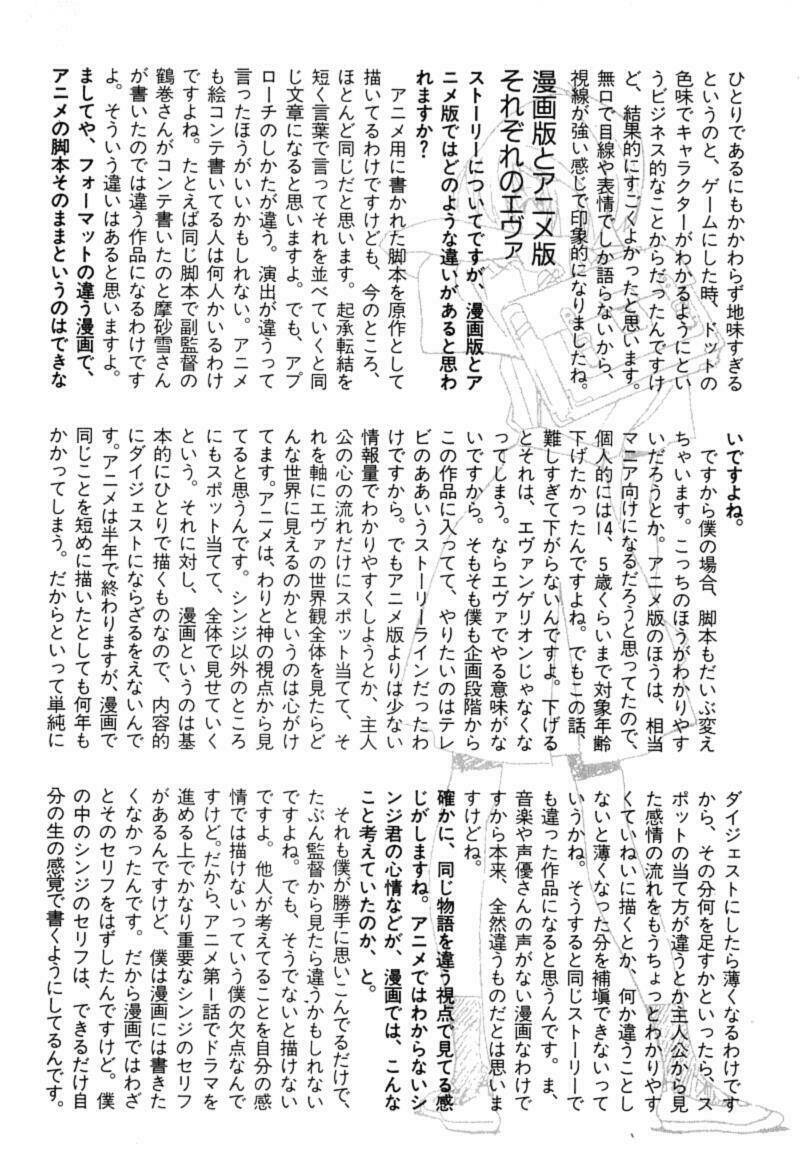 ひとりであるにもかかわらず地味すぎる
というのと、ゲームにした時、ドットの
色味でキャラクターがわかるようにとい
うビジネス的なことからだったんですけ
ど、結果的にすごくよかったと思います。
無口で目線や表情でしか語らないから、
視線が強い感じで印象的になりましたね。
漫画版とアニメ版
それぞれのエヴァ
ストーリーについてですが、漫画版とア
ニメ版ではどのような違いがあると思わ
れますか？
アニメ用に書かれた脚本を原作として
描いてるわけですけども、今のところ、
ほとんど同じだと思います。起承転結を
短く言葉で言ってそれを並べていくと同
じ文章になると思いますよ。でも、アプ
ローチのしかたが違う。演出が違うって
言ったほうがいいかもしれない。アニメ
も絵コンテ書いてる人は何人かいるわけ
ですよね。たとえば同じ脚本で副監督の
鶴巻さんがコンテ書いたのと摩砂雪さん
が書いたのでは違う作品になるわけです
よ。そういう違いはあると思いますよ。
ましてや、フォーマットの違う漫画で、
アニメの脚本そのままというのはできな
いですよね。
ですから僕の場合、脚本もだいぶ変え
ちゃいます。こっちのほうがわかりやす
いだろうとか。アニメ版のほうは、相当
マニア向けになるだろうと思ってたので、
個人的には14、5歳くらいまで対象年齢
下げたかったんですよね。でもこの話、
難しすぎて下がらないんですよ。下げる
とそれは、エヴァンゲリオンじゃなくな
ってしまう。ならエヴァでやる意味がな
いですから。そもそも僕も企画段階から
この作品に入ってて、やりたいのはテレ
ビのああいうストーリーラインだったわ
けですから。でもアニメ版よりは少ない
情報量でわかりやすくしようとか、主人
公の心の流れだけにスポット当てて、そ
れを軸にエヴァの世界観全体を見たらど
んな世界に見えるのかというのは心がけ
てます。アニメは、わりと神の視点から見
てると思うんです。シンジ以外のところ
にもスポット当てて、全体で見せていく
という。それに対し、漫画というのは基
本的にひとりで描くものなので、内容的
にダイジェストにならざるをえないんで
す。アニメは半年で終わりますが、漫画で
同じことを短めに描いたとしても何年も
かかってしまう。だからといって単純に
ダイジェストにしたら薄くなるわけです
から、その分何を足すかといったら、ス
ポットの当て方が違うとか主人公から見
た感情の流れをもうちょっとわかりやす
くていねいに描くとか、何か違うことし
ないと薄くなった分を補塡できないって
いうかね。そうすると同じストーリーで
も違った作品になると思うんです。ま、
音楽や声優さんの声がない漫画なわけで
すから本来、全然違うものだとは思いま
すけどね。
確かに、同じ物語を違う視点で見てる感
じがしますね。アニメではわからないシ
ンジ君の心情などが、漫画では、こんな
こと考えていたのか、と。
それも僕が勝手に思いこんでるだけで、
たぶん監督から見たら違うかもしれない
ですよね。でも、そうでないと描けない
ですよ。他人が考えてることを自分の感
情では描けないっていう僕の欠点なんで
すけど。だから、アニメ第1話でドラマを
進める上でかなり重要なシンジのセリフ
があるんですけど、僕は漫画には書きた
くなかったんです。だから漫画ではわざ
とそのセリフをはずしたんですけど。僕
の中のシンジのセリフは、できるだけ自
分の生の感覚で書くようにしてるんです。